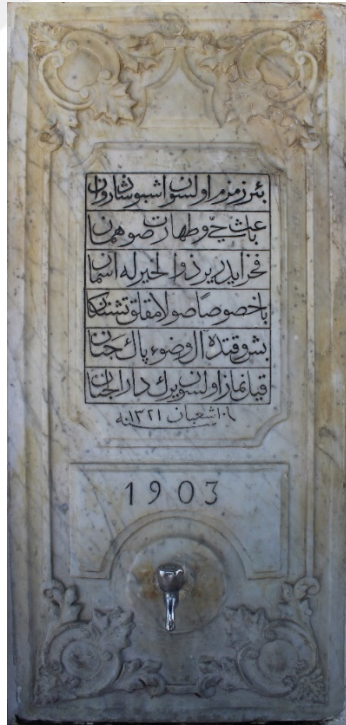 بئر زمزم اولسون اشبو شادروان
باعث حى و طهارت صو همان
فخر ايدر يرذوالخيرله اسمان
باخصوصا صولامقلق تشنكان
بش وقتده ال وضوء پاك جنان
قيل نماز اولسون يرك دار الجنان
١٠ شعبان ١٣٢١ سنه
1903